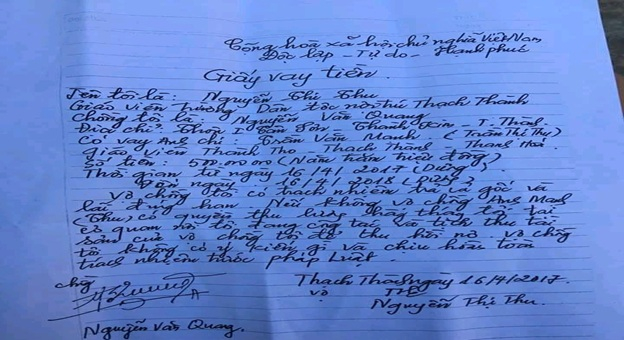 Cộng hoà xã hội chủ nghĩa Việt Nam
Độc lập - Tự do - Hạnh phúc
Giấy vay tiền.
Tên tôi là: Nguyễn Thị Thu
Giáo viên trường: Dân tộc nội trú Thạch Thành
Chồng tôi là: Nguyễn Văn Quang
Địa chỉ: Thôn 1 - T. Thành.
Có vay Anh chị: Trần Văn Mạnh (Trần Thị Thu)
giáo viên Thành Thọ - Thạch Thành - Thanh Hoá.
Số tiền: 500.000.000 (Năm trăm triệu đồng)
Thời gian từ ngày 16/4/2017 (Dương)
Đến ngày 16/4/2018 (Dương)
Vợ chồng tôi có trách nhiệm trả và gốc và
lãi đúng hạn Nếu không vợ chồng Anh Mạnh
(Thu) có quyền thu lương hàng tháng tôi tại
cơ quan nơi tôi đang công tác và tịch thu tài
sản của vợ chồng tôi để thu hồi nợ vợ chồng
tôi không có ý kiến gì và chịu hoàn toàn
trách nhiệm trước pháp Luật.
Thạch Thành ngày 16/4/2017.
chồng
vợ
Thu
Nguyễn Thị Thu.
Nguyễn Văn Quang.